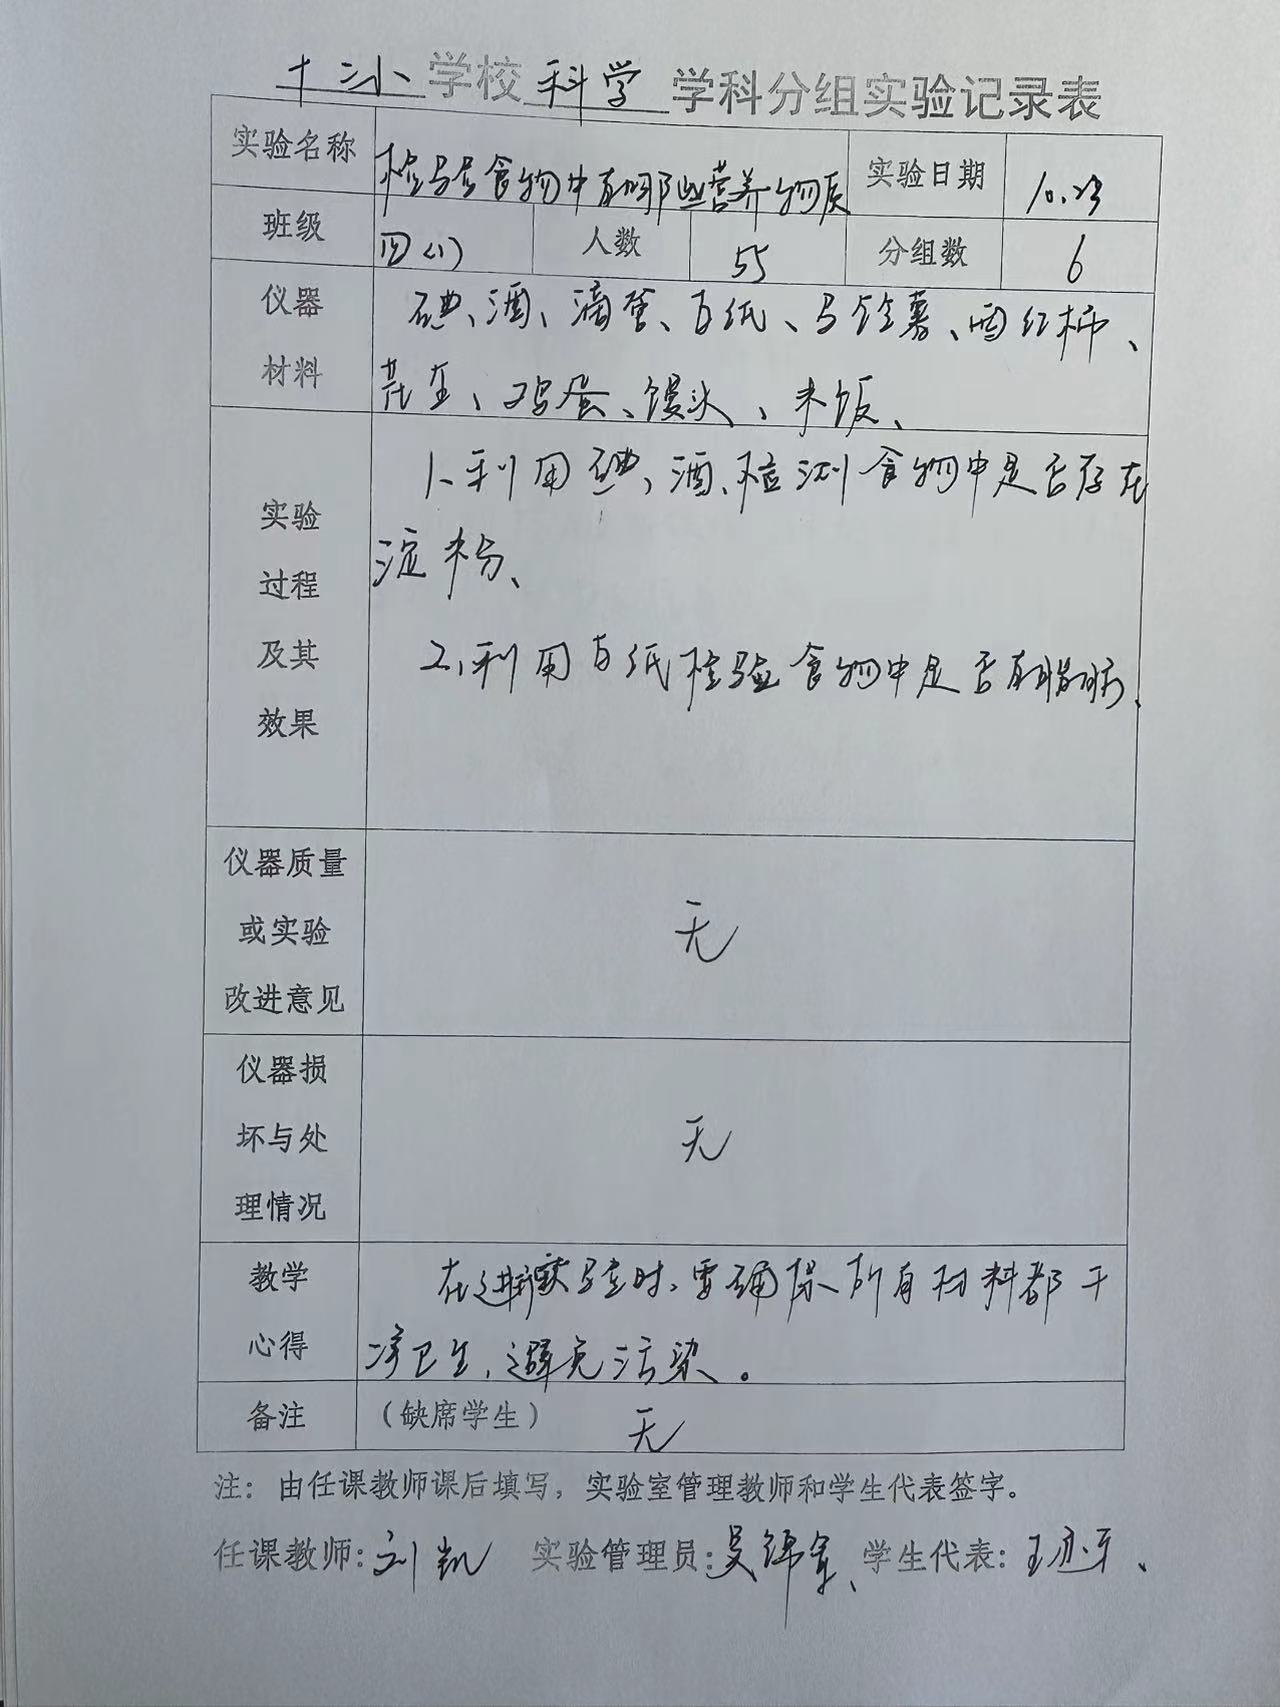 十二小学校科学学科分组实验记录表
实验名称 检验食物中有哪些营养物质 实验日期 10.23
班级 四(1) 人数 55 分组数 6
仪器 碘、酒、滴管、白纸、马铃薯、西红柿、
材料 花生、鸡蛋、馒头、米饭、
1、利用碘、酒、检测食物中是否存在
实验
淀粉、
过程
及其 2、利用白纸检验食物中是否有脂肪、
效果
仪器质量
或实验 无
改进意见
仪器损
坏与处 无
理情况
教学 在进行实验时、需确保所有材料都干
心得 净卫生,避免污染。
备注 (缺席学生) 无
注:由任课教师课后填写,实验室管理教师和学生代表签字。
任课教师:刘凯 实验管理员:吴锦 学生代表:王亦